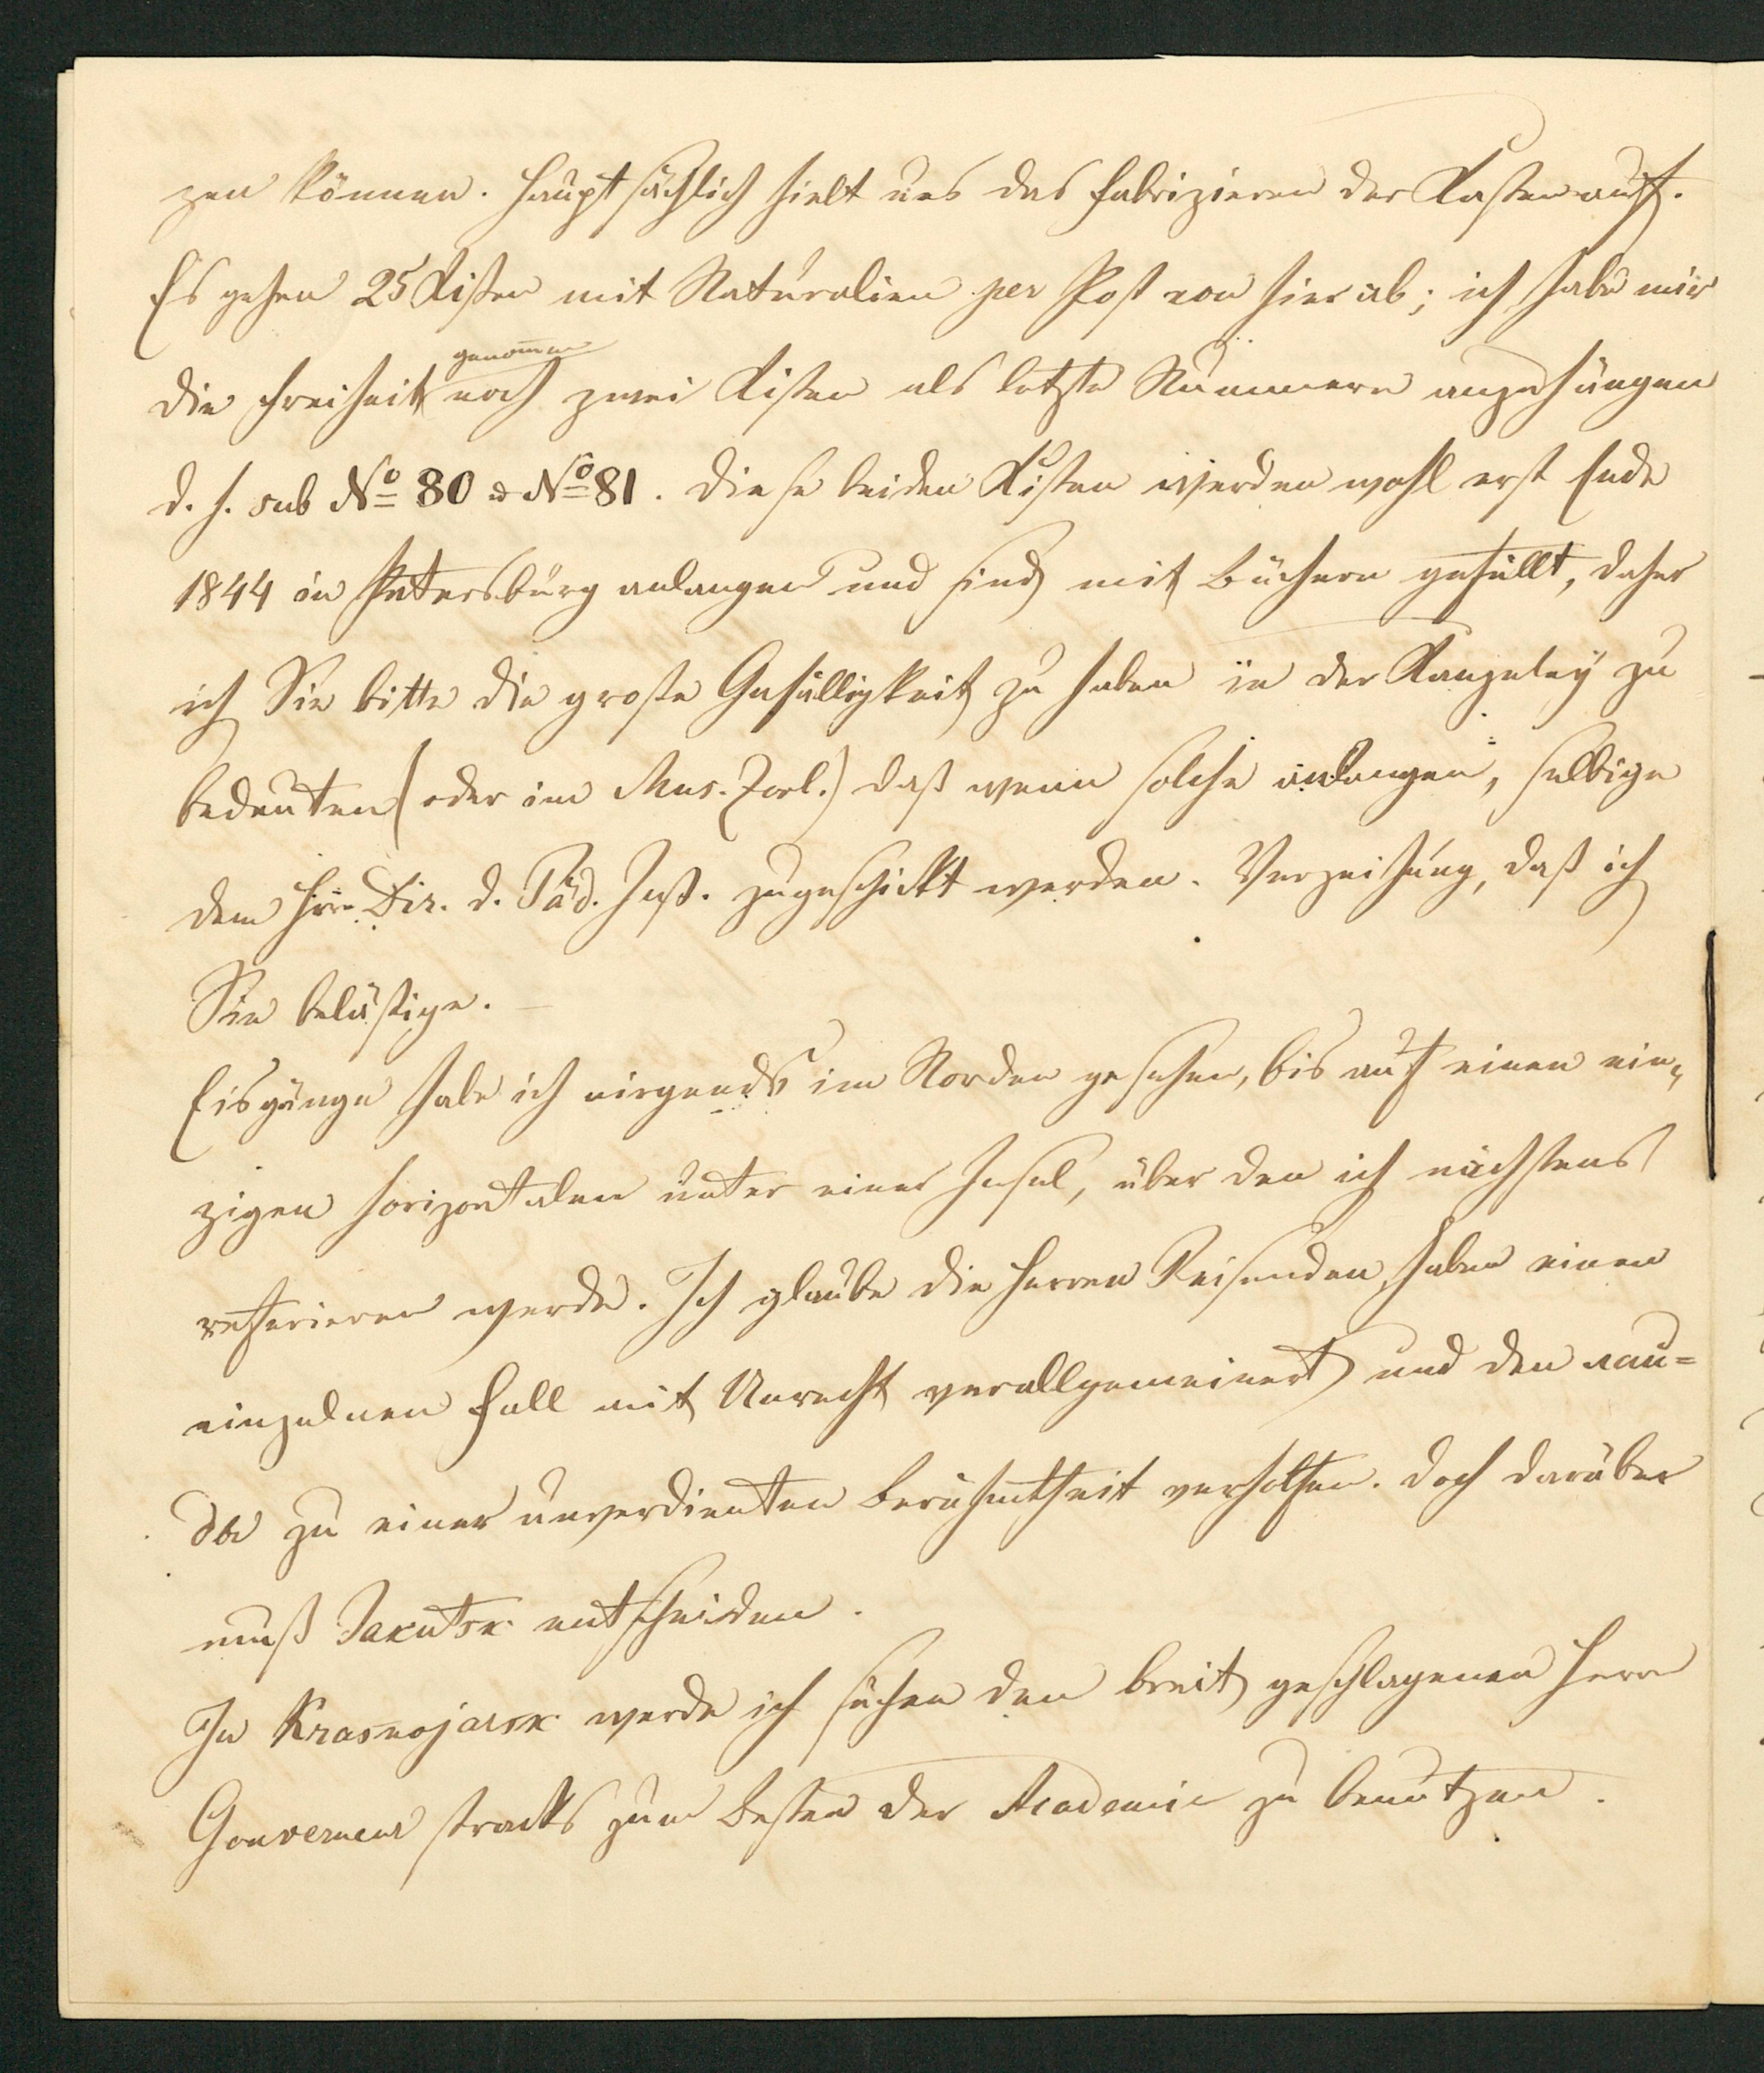 zen können. Hauptsächlich hielt uns das Fabrizieren der Kasten auf.
Es gehen 25 Kisten mit Naturalien per Post von hier ab; ich habe mir
genom̄en
die Freiheit noch zwei Kisten als letzte Nummern anzuhängen
d. h. sub No 80 & No 81. Diese beiden Kisten werden wohl erst Ende
1844 in Petersburg anlangen und sind mit Büchern gefüllt, daher
ich Sie bitte die große Gefälligkeit zu haben in der Kanzeley zu
bedeuten (oder im Mus. Zool.) daß wenn solche anlangen, selbige
dem Hrn Dir. d. Päd. Inst. zugeschickt werden. Verzeihung, daß ich
Sie belästige. –
Eisgänge habe ich nirgends im Norden gesehen, bis auf einen ein-
zigen horizontalen unter einer Insel, über den ich nächstens
referieren werde. Ich glaube die Herren Reisenden haben einen
einzelnen Fall mit Unrecht verallgemeinert und den лаu=
dы zu einer unverdienten Berühmtheit verholfen. Doch darüber
muß Jakutsk entscheiden.
In Krasnojarsk werde ich suchen den breit geschlagenen Herrn
Gouverneur stracks zum Besten der Academie zu benutzen.